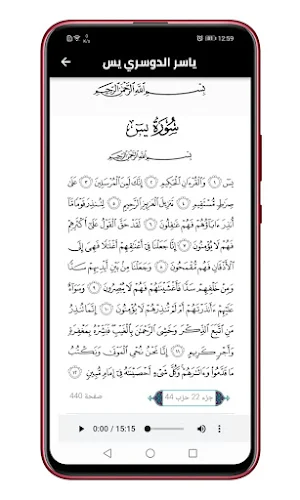 12:59
ياسر الدوسري يس
بسم الله الرحمن الرحيم
سورة يس
بسم الله الرحمن الرحيم
يس ١ والقرءان الحكيم ٢ إنك لمن المرسلين ٣ على
صرط مستقيم ٤ تنزيل العزيز الرحيم ٥ لتنذر قوما ما
أنذر ءاباؤهم فهم غفلون ٦ لقد حق القول على أكثرهم
فهم لا يؤمنون ٧ إنا جعلنا في أعنقهم أغللا فهي إلى
الأذقان فهم مقمحون ٨ وجعلنا من بين أيديهم سدا
ومن خلفهم سدا فأغشينهم فهم لا يبصرون ٩ وسواء
عليهم ءأنذرتهم أم لم تنذرهم لا يؤمنون ١٠ إنما تنذر
من اتبع الذكر وخشي الرحمن بالغيب فبشره بمغفرة
وأجر كريم ١١ إنا نحن نحي الموتى ونكتب
ما قدموا وءاثرهم وكل شيء أحصينه في إمام مبين ١٢
جزء 22 حزب 44
صفحة 440
0:00 / 15:15